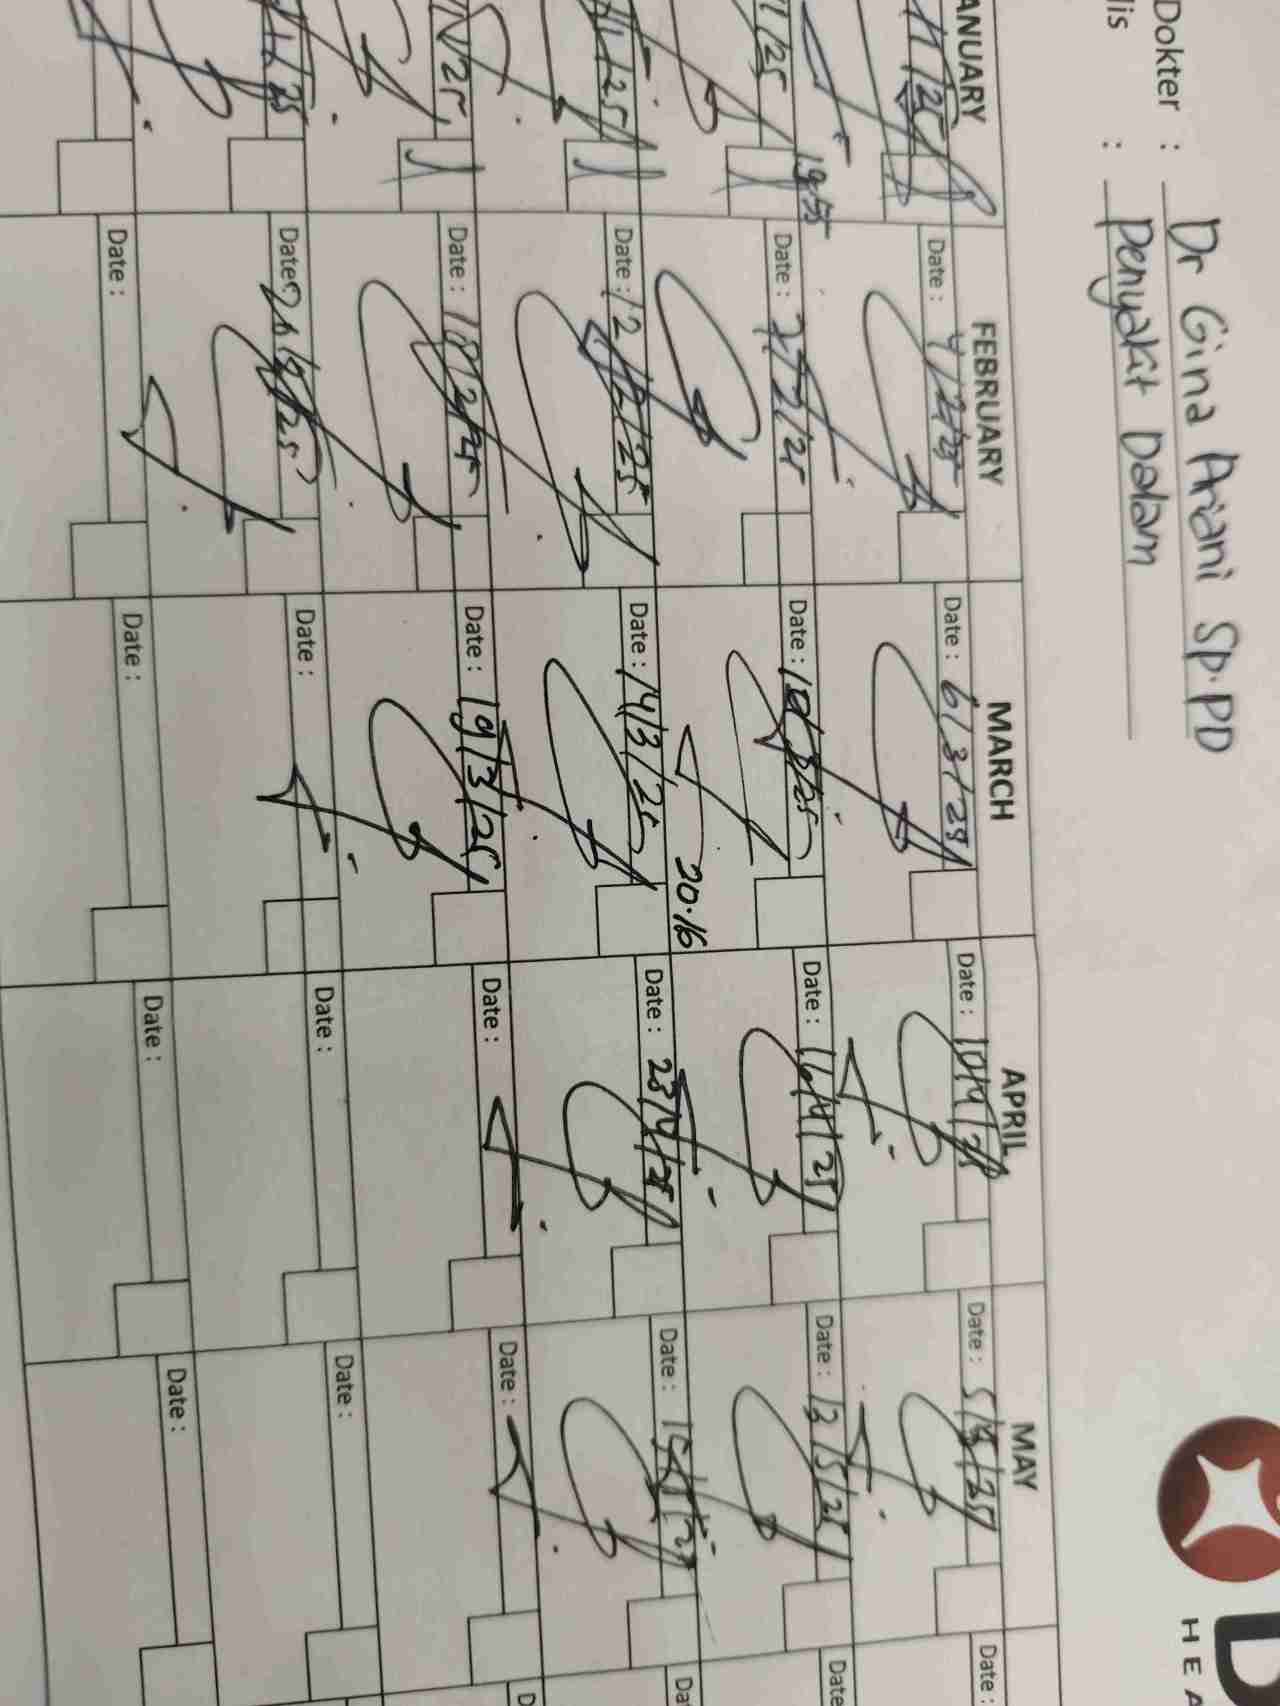 Dokter : Dr Gina Ariani Sp.PD
lis : Penyakit Dalam
HEA
ANUARY FEBRUARY MARCH APRIL MAY
Date : 4/2/25 Date : 6/3/25 Date : 10/4/25 Date : 5/5/25 Date :
19.55
/25 Date : 7/2/25 Date : Date : 16/4/25 Date : 13/5/25 Date
20.16
/25 Date : 12/2/25 Date : 14/3/25 Date : 23/4/25 Date : Da
/25 Date : 18/2/25 Date : 19/3/25 Date : Date : D
/25 Date : Date : Date : Date :
Date : Date : Date : Date :